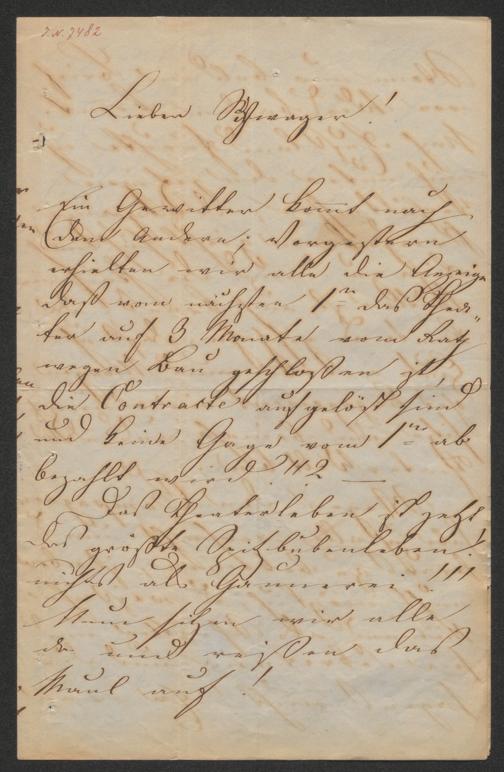 J.N. 7482
Lieber Schwager!
Ein Gewitter kom̅t nach
dem Andern; Vorgestern
erhielten wir alle die Anzeige
daß vom nächsten 1ten das Thea-
ter auf 3 Monate vom Rath
wegen Bau geschloßen ist,
die Contracte aufgelöst sind
und keine Gage vom 1ten ab
bezahlt wird!!? —
Das Theaterleben ist jetzt
das größte Spitzbubenleben!
nichts als Gaunerei !!!
Nun sitzen wir alle
da und reißen das
Maul auf!